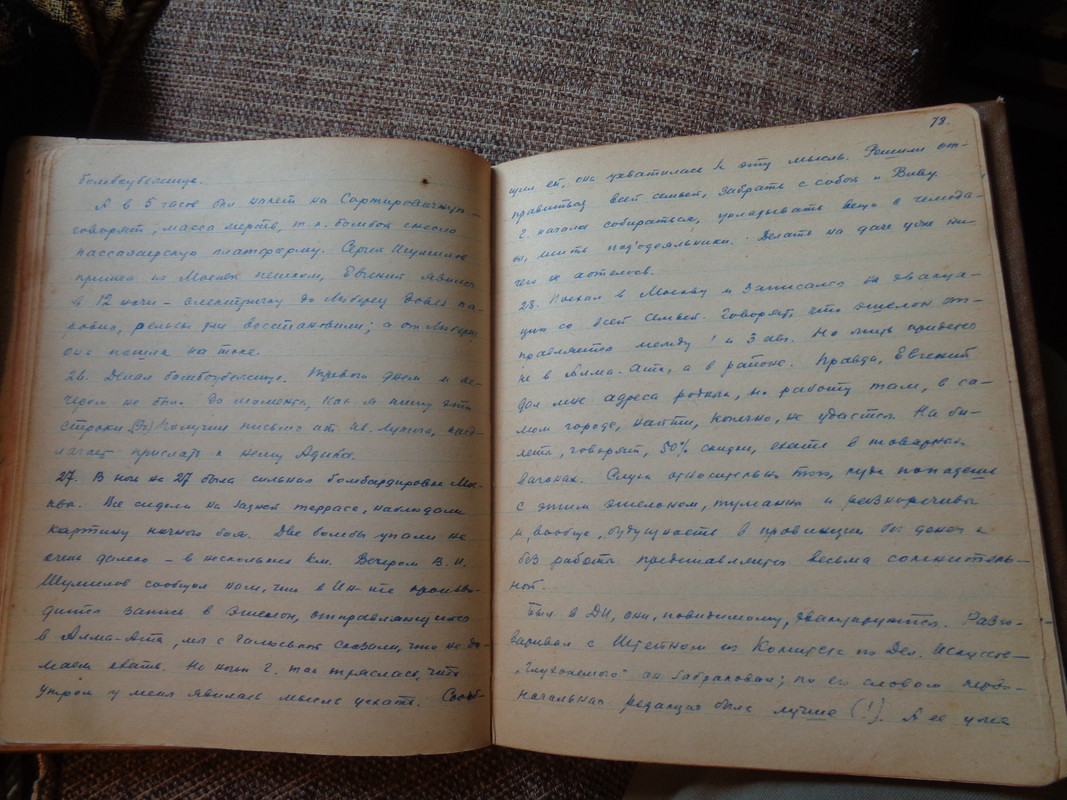 бомбоубежище.
А в 5 часов был налет на Сортировочную –
говорят, масса мертв., т.к. бомбой снесло
пассажирскую платформу. Сергей Шумилов
пришел из Москвы пешком, Евгений явился
в 12 ночи – электричку до Люберец довел па-
ровик, рельсы уже восстановили; а от Люберец
она пошла на токе.
26. Делал бомбоубежище. Тревоги днем и ве-
чером не было до момента, как я пишу эти
строки. Получил письмо от
лагает прислать к нему Адика.
27. В ночь на 27 была сильная бомбардировка Мос-
квы. Все сидели на задней террасе, наблюдали
картину ночного боя. Две бомбы упали не
очень далеко – в нескольких км. Вечером В. И.
Шумилов сообщил нам, что в Ин-те произво-
дится запись в эшелон, отправляющийся
в Алма-Ата, мы с Галюськой сказали, что не ду-
маем ехать. Но ночью Г. так тряслась, что
утром у меня явилась мысль уехать. Сооб-
78.
щил ей, она ухватилась за эту мысль. Решили от-
правиться всей семьей, забрать с собой и Виву.
Г. начала собираться, укладывать вещи в чемода-
ны, шить пододеяльники. Делать на даче уже ни-
чего не хотелось.
28. Поехал в Москву и записался на эвакуа-
цию со всей семьей. Говорят, что эшелон от-
правляется между 1 и 3 авг. Но лишь привезет
не в Алма-Ата, а в районе. Правда, Евгений
дал мне адреса родных, но работу там, в са-
мом городе, найти, конечно, не удастся. На би-
леты, говорят, 50% скидки, ехать в товарных
вагонах. Слухи относительно того, куда попадешь
с этим эшелоном, туманны и разноречивы
и, вообще, будущность в провинции без денег и
без работы представляется весьма сомнитель-
ной.
Был в ДИ, они, повидимому, эвакуируются. Разго-
варивал с Штейном из Комитета по Дел. Искусств –
„Глухонемого“ он забраковал; по его словам перво-
начальная редакция была лучше (!). А ее уже